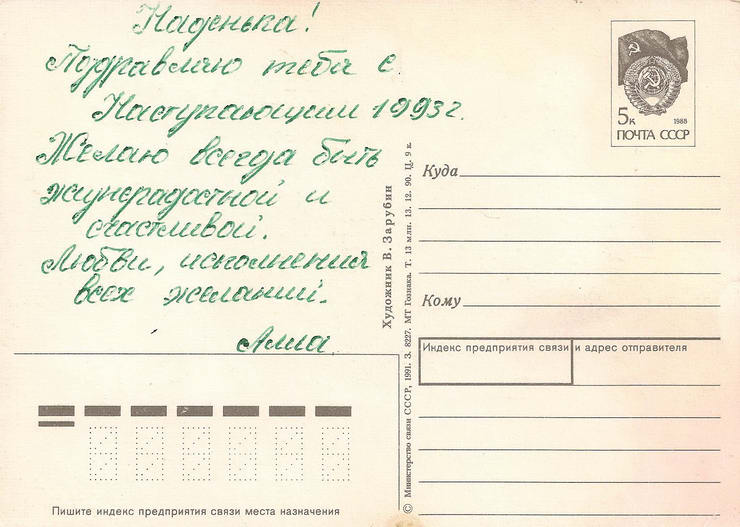 Наденька!
Поздравляю тебя с
Наступающим 1993г.
Желаю всегда быть
жизнерадостной и
счастливой.
Любви, исполнения
всех желаний.
Алла.
5к 1988
ПОЧТА СССР
Куда
Кому
Индекс предприятия связи и адрес отправителя
Пишите индекс предприятия связи места назначения
Художник В. Зарубин
© Министерство связи СССР, 1991. З. 8227. МТ Гознака. Т. 13 млн. 13. 12. 90. Ц. 9 к.